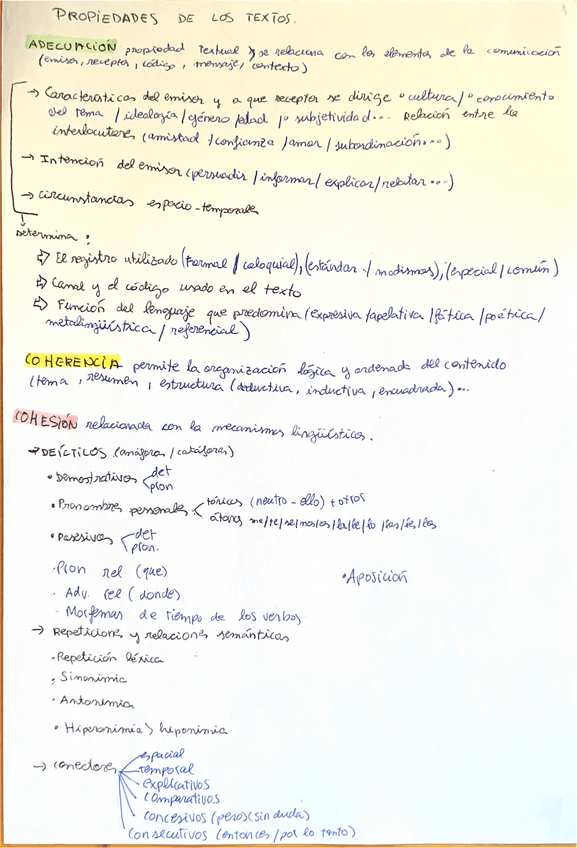 PROPIEDADES DE LOS TEXTOS.
1
ADECUACIÓN propiedad textual y se relaciona con los elementos de la comunicación
(emisor, receptor, código, mensaje, contexto)
→ Características del emisor y a que receptor se dirige cultura / conocimiento
del tema / ideología / género / edad / subjetividad... Relación entre los
interlocutores (amistad / confianza / amor / subordinación...)
→ Intención del emisor (persuadir / informar / explicar / rebatir...)
→ Circunstancias espacio-temporales
Determina:
⇨ El registro utilizado (formal / coloquial), (estándar / modismos), (especial / común)
⇨ Canal y el código usado en el texto
⇨ Función del lenguaje que predomina (expresiva / apelativa / fática / poética /
metalingüística / referencial)
COHERENCIA permite la organización lógica y ordenada del contenido
(tema, resumen, estructura (deductiva, inductiva, encuadrada)...
COHESIÓN relacionada con la mecanismos lingüísticos.
→ DEÍCTICOS (anáforas / catáforas)
• Demostrativos det
pron
• Pronombres personales tónicas (neutro - ello) + otros
átonos me/te/se/nos/os/la/le/lo/las/les/los
• Posesivos det
pron.
• Pron rel (que)
• Aposición
• Adv. rel (donde)
• Morfemas de tiempo de los verbos
→ Repeticiones y relaciones semánticas
• Repetición léxica
• Sinonimia
• Antonimia
• Hiperonimia > hiponimia
→ conectores espacial
temporal
explicativos
comparativos
concesivos (pero) (sin duda)
consecutivos (entonces / por lo tanto)